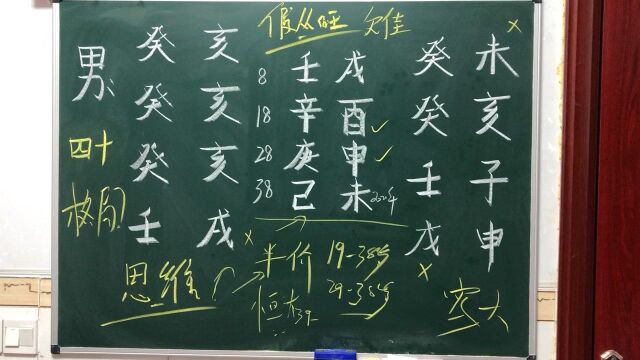 假从旺 难
男
四十
格局
癸亥
癸亥
癸亥
壬戌 x
8 壬戌
18 辛酉 ✓
28 庚申 ✓
38 己未 2024
癸未 x
癸亥
壬子
戊申
x
思维
半价 19-38岁
恒大 39- 29-38岁